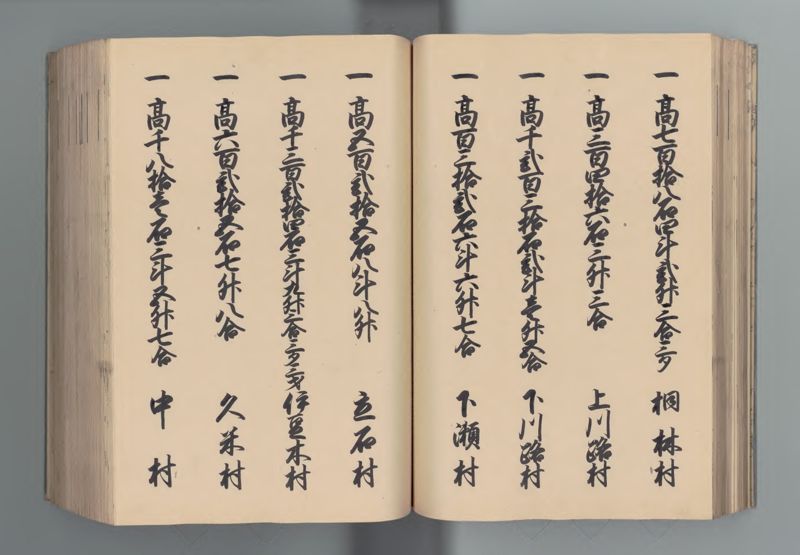 一 高七百拾八石四斗弐升三合三夕 桐林村
一 高三百四拾六石三升三合 上川路村
一 高千弐百三拾石弐斗壱升五合 下川路村
一 高百三拾弐石六斗六升七合 下瀬村
一 高五百弐拾五石八斗八升 立石村
一 高千三百弐拾四石三斗九升二合三夕三才 伊豆木村
一 高六百弐拾五石七升八合 久米村
一 高千八拾壱石三斗五升七合 中村